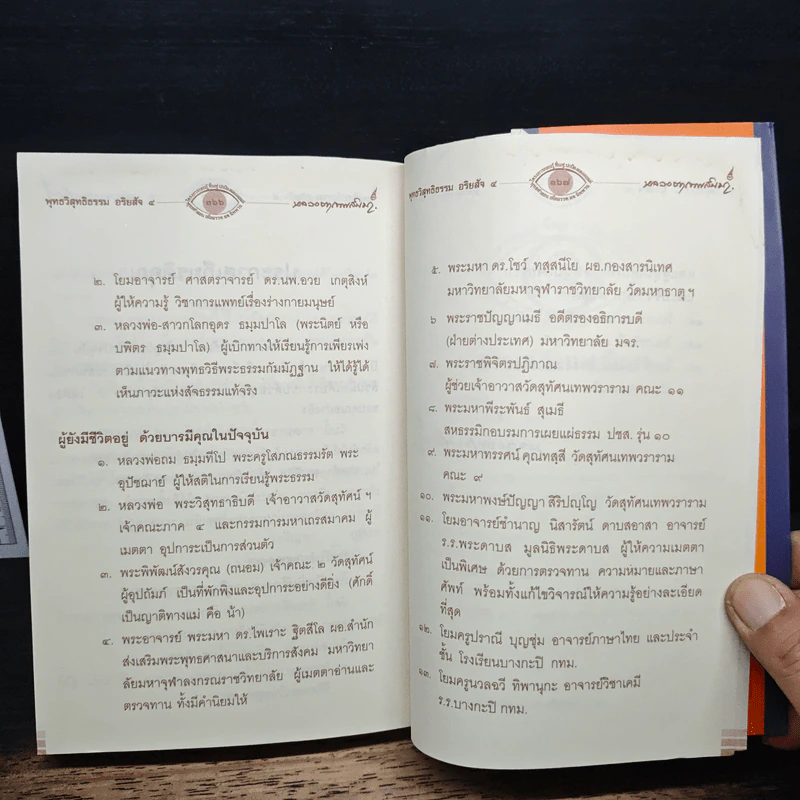 พุทธวิสุทธิธรรม อริยสัจ ๔
๓๖๖
๒. โยมอาจารย์ ศาสตราจารย์ ดร.นพ.อวย เกตุสิงห์
ผู้ให้ความรู้ วิชาการแพทย์เรื่องร่างกายมนุษย์
๓. หลวงพ่อ-สาวกโลกอุดร ธมฺมปาโล (พระนิตย์ หรือ
บพิตร ธมฺมปาโล) ผู้เบิกทางให้เรียนรู้การเพียรเพ่ง
ตามแนวทางพุทธวิธีพระธรรมกัมมัฏฐาน ให้ได้รู้ได้
เห็นภาวะแห่งสัจธรรมแท้จริง
ผู้ยังมีชีวิตอยู่ ด้วยบารมีคุณในปัจจุบัน
๑. หลวงพ่อถม ธมฺมทีโป พระครูโสภณธรรมรัต พระ
อุปัชฌาย์ ผู้ให้สติในการเรียนรู้พระธรรม
๒. หลวงพ่อ พระวิสุทธาธิบดี เจ้าอาวาสวัดสุทัศน์ ฯ
เจ้าคณะภาค ๔ และกรรมการมหาเถรสมาคม ผู้
เมตตา อุปการะเป็นการส่วนตัว
๓. พระพิพัฒน์สังวรคุณ (ถนอม) เจ้าคณะ ๒ วัดสุทัศน์
ผู้อุปถัมภ์ เป็นที่พักพิงและอุปการะอย่างดียิ่ง (ศักดิ์
เป็นญาติทางแม่ คือ น้า)
๔. พระอาจารย์ พระมหา ดร.ไพเราะ ฐิตสีโล ผอ.สำนัก
ส่งเสริมพระพุทธศาสนาและบริการสังคม มหาวิทยา
ลัยมหาจุฬาลงกรณราชวิทยาลัย ผู้เมตตาอ่านและ
ตรวจทาน ทั้งมีคำนิยมให้
พุทธวิสุทธิธรรม อริยสัจ ๔
๓๖๗
๕. พระมหา ดร.โชว์ ทสฺสนีโย ผอ.กองสารนิเทศ
มหาวิทยาลัยมหาจุฬาราชวิทยาลัย วัดมหาธาตุ ฯ
๖ พระราชปัญญาเมธี อดีตรองอธิการบดี
(ฝ่ายต่างประเทศ) มหาวิทยาลัย มจร.
๗. พระราชพิจิตรปฏิภาณ
ผู้ช่วยเจ้าอาวาสวัดสุทัศนเทพวราราม คณะ ๑๑
๘. พระมหาพีระพันธ์ สุเมธี
สหธรรมิกอบรมการเผยแผ่ธรรม ปชส. รุ่น ๑๐
๙. พระมหาทรรศน์ คุณทสฺสี วัดสุทัศนเทพวราราม
คณะ ๙
๑๐. พระมหาพงษ์ปัญญา สิริปญฺโญ วัดสุทัศนเทพวราราม
๑๑. โยมอาจารย์ชำนาญ นิสารัตน์ ดาบสอาสา อาจารย์
ร.ร.พระดาบส มูลนิธิพระดาบส ผู้ให้ความเมตตา
เป็นพิเศษ ด้วยการตรวจทาน ความหมายและภาษา
ศัพท์ พร้อมทั้งแก้ไขวิจารณ์ให้ความรู้อย่างละเอียด
ที่สุด
๑๒. โยมครูปราณี บุญชุ่ม อาจารย์ภาษาไทย และประจำ
ชั้น โรงเรียนบางกะปิ กทม.
๑๓. โยมครูนวลอวี ทิพานุกะ อาจารย์วิชาเคมี
ร.ร.บางกะปิ กทม.